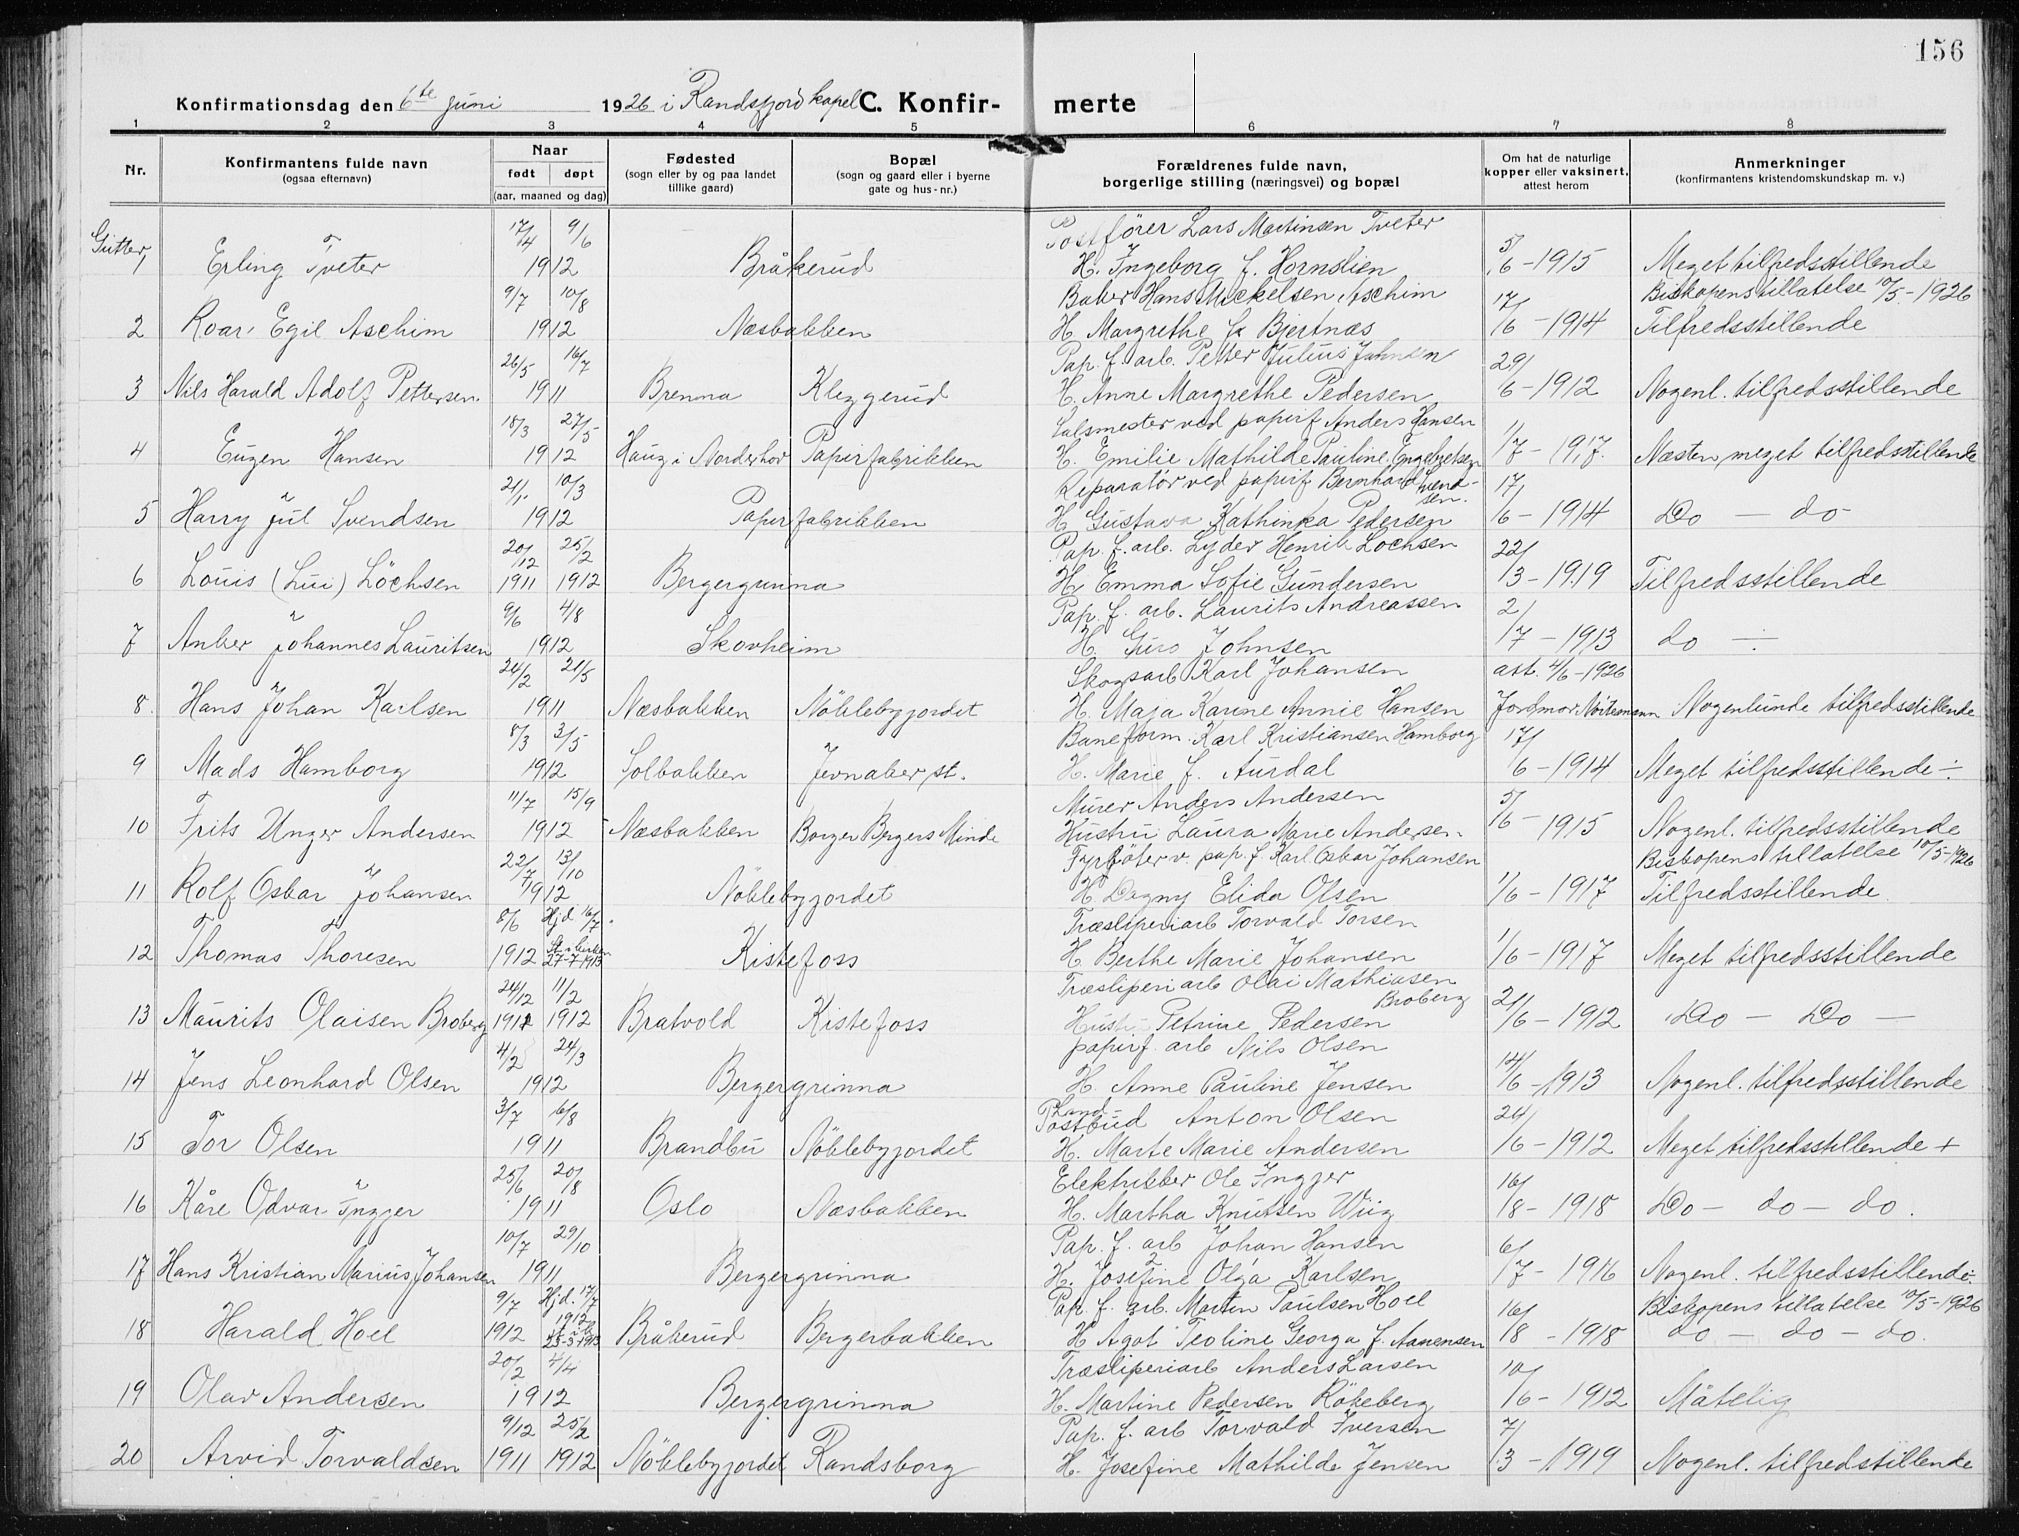 156
Konfirmationsdag den 6te juni 1926 i Randsfjord kapel C. Konfirmerte
1 2 3 4 5 6 7 8
Nr. Konfirmantens fulde navn (ogsaa efternavn) Naar født døpt (aar, maaned og dag) Fødested (sogn eller by og paa landet tillike gaard) Bopæl (sogn og gaard eller i byerne gate og hus-nr.) Forældrenes fulde navn, borgerlige stilling (næringsvei) og bopæl Om hat de naturlige kopper eller vaksinert, attest herom Anmerkninger (konfirmantens kristendomskundskap m. v.)
Gutter
17/4 9/6 Postfører Lars Martinsen Tveter 5/
1 Erling Tveter 1912 Bråkerud H. Ingeborg f. Hornslien 6-1915 Meget tilfredsstillende
9/7 10/8 Baker Hans Mickelsen Aschim 17/ Biskopens tillatelse 10/5-1926
2 Roar Egil Aschim 1912 Næsbakken H. Margrethe f. Bjertnæs 6-1914 Tilfredsstillende
26/5 16/7 Pap. f. arb. Petter Julius Johnsen 29/
3 Nils Harald Adolf Pettersen 1911 Brenna Kleggerud H. Anne Margrethe Pedersen 6-1912 Nogenl. tilfredsstillende
18/3 27/5 Salsmester ved papirf Anders Hansen 1/
4 Eugen Hansen 1912 Haug i Norderhov Papirfabrikken H. Emilie Mathilde Pauline Engebretsen 7-1917. Næsten meget tilfredsstillende
21/1 10/3 Reparatør ved papirf Bernhard Svendsen. 17/
5 Harry Jul Svendsen 1912 Papirfabrikken H Gustava Kathinka Pedersen 6-1914 Do - do
20/12 25/2 Pap. f. arb. Lyder Henrik Lochsen 22/
6 Louis (Lui) Löchsen 1911 1912 Bergergrinna H Emma Sofie Gundersen 3-1919 Tilfredsstillende
9/6 4/8 Pap. f. arb. Laurits Andreassen 2/
7 Anker Johannes Lauritsen 1912 Skovheim H. Guro Johnsen 7-1913 do ÷
24/2 21/5 Skogsarb Karl Johansen att. 4/6-1926
8. Hans Johan Karlsen 1911 Næsbakken Nöklebyjordet H. Maja Karine Annie Hansen Jordmor Nogenlunde tilfredsstillende
8/3 3/5 Baneform. Karl Kristiansen Hamborg 17/
9 Mads Hamborg 1912 Solbakken Jevnaker st. H. Marie f. Aurdal 6-1914 Meget tilfredsstillende ÷
11/7 15/9 Murer Anders Andersen 5/
10 Frits Unger Andersen 1912 Næsbakken Borger Bergers Minde Hustru Laura Marie Andersen. 6-1915 Nogenl. tilfredsstillende
22/7 13/10 Fyrböter v. pap. f. Karl Oskar Johansen Biskopens tillatelse 10/5-1926
11 Rolf Oskar Johansen 1912 Nöklebyjordet H. Dagny Elida Olsen 1/6-1917 Tilfredsstillende
8/6 Hjd 16/7 Træsliperiarb Torvald Torsen 1/
12 Thomas Thoresen 1912 27-7-1913 Kistefoss H Berthe Marie Johansen 6-1917 Meget tilfredsstillende
24/12 11/2 Træsliperiarb Olai Mathiasen Broberg 21/
13 Maurits Olaisen Broberg 1911 1912 Bratvold Kistefoss Hustr Petrine Pedersen 6-1912 Do - Do -
4/2 24/3 papirf. arb Nils Olsen 14/
14 Jens Leonhard Olsen 1912 Bergergrinna H. Anne Pauline Jensen 6-1913 Nogenl. tilfredsstillende
3/7 6/8 Landpostbud Anton Olsen 24/
15 Tor Olsen 1911 Brandbu Nöklebyjordet H. Marte Marie Andersen 6-1912 Meget tilfredsstillende +
25/6 20/8 Elektrikker Ole Ingjer 16/
16 Kåre Odvar Ingjer 1911 Oslo Næsbakken H. Martha Knutsen Wiig 8-1918 Do - do - do.
10/7 29/10 Pap. f. arb Johan Hansen 6/
17 Hans Kristian Marius Johansen 1911 Bergergrinna H. Josefine Olga Karlsen 7-1916 Nogenl. tilfredsstillende ÷
9/7 Hjd. 17/7 1912 Pap. f. arb. Martin Paulsen Hoel 16/ Biskopens tillatelse 10/5-1926
18 Harald Hoel 1912 23-3-1913 Bråkerud Bergerbakken H Agot Teoline Georga f. Aanensen 8-1918 do - do - do.
20/2 4/4 Træsliperiarb Anders Larsen 10/
19 Olav Andersen 1912 Bergergrinna H. Martine Pedersen Rökeberg 6-1912 Måtelig
9/12 25/2 Pap. f. arb Torvald Iversen 7/
20 Arvid Torvaldsen 1911 1912 Nöklebyjordet Randsborg H. Josefine Mathilde Jensen 3-1919 Nogenl. tilfredstillende